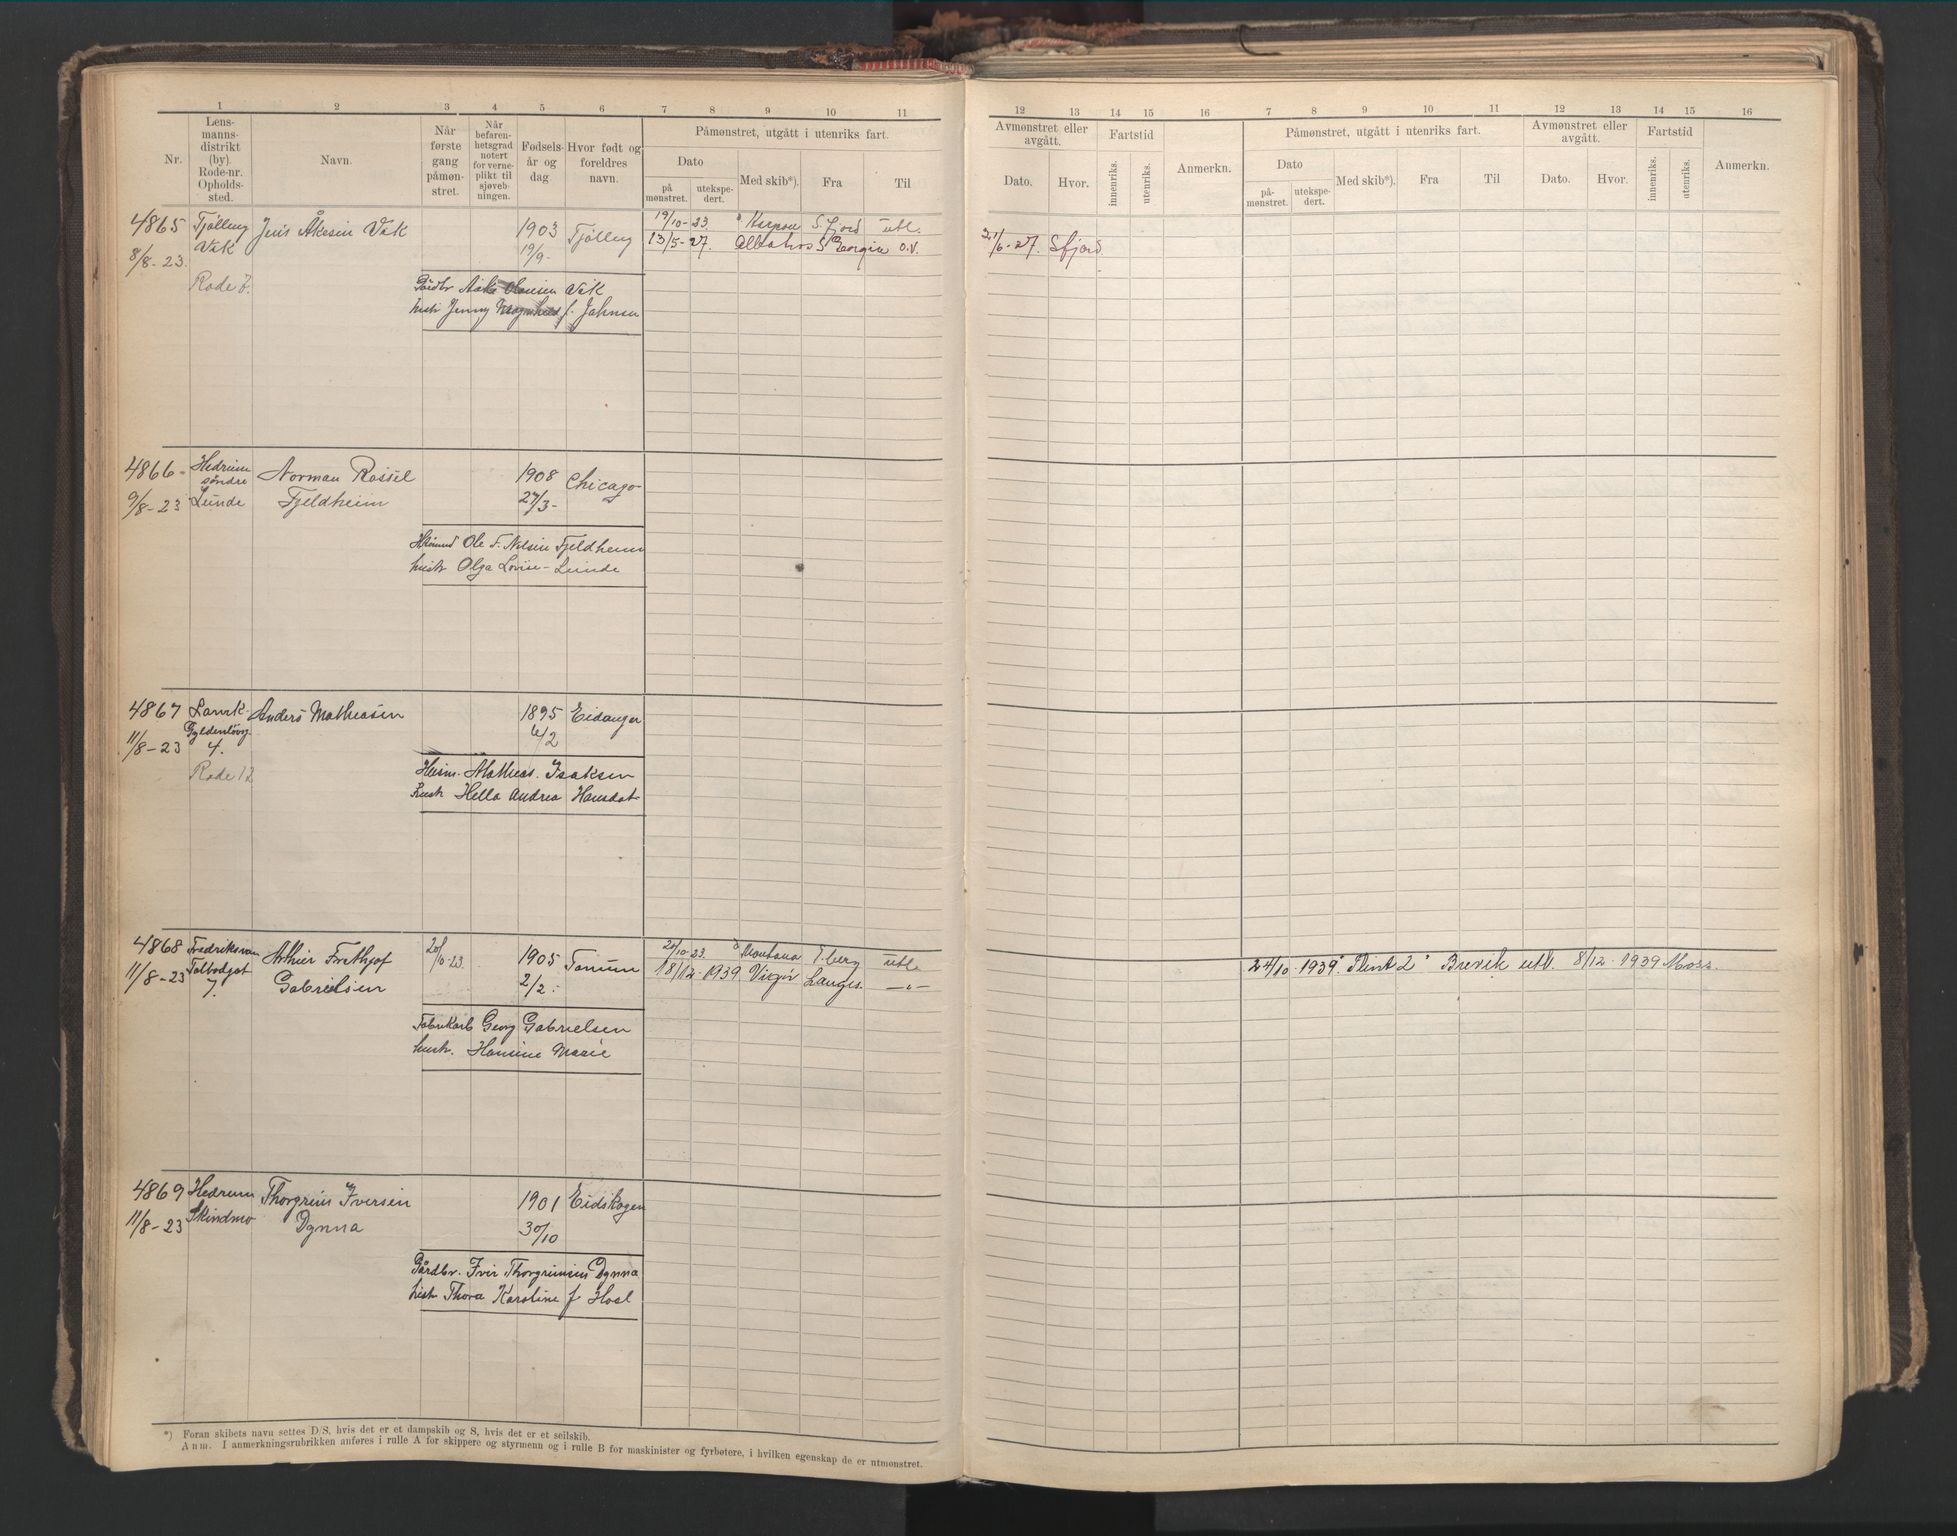 1 2 3 4 5 6 7 8 9 10 11
Nr.
Lens-
manns-
distrikt
(by).
Rode-nr.
Opholds-
sted.
Navn.
Når
første
gang
påmøn-
stret.
Når
befaren-
hetsgrad
notert
for verne-
plikt til
sjøveb-
ningen.
Fødsels-
år og
dag
Hvor født og
foreldres
navn.
Påmønstret, utgått i utenriks fart.
Dato
på
mønstret.
utekspe-
dert.
Med skib*).
Fra
Til
12 13 14 15 16 7 8 9 10 11 12 13 14 15 16
Avmønstret eller
avgått.
Dato.
Hvor.
Fartstid
innenriks.
utenriks.
Anmerkn.
Påmønstret, utgått i utenriks fart.
Dato
på-
mønstret.
utekspe-
dert.
Med skib*).
Fra
Til
Avmønstret eller
avgått.
Dato.
Hvor.
Fartstid
innenriks.
utenriks.
Anmerkn.
4865 Tjølling Jens Åkesen Vak 1903 Tjølling 19/10-23. S.fjord utl.
8/8-23. Vak 19/9- 13/5-27. Albatros S Georgia o.v. 27. Sfjord
Rode 7.
Gårdbr Vak
hustr Jenny f. Johnsen
4866 Hedrum Norman Rossel 1908 Chicago
9/8-23 søndre Lunde Fjeldheim 27/3-
Ole F. Nilsen Fjeldheim
hustr Olga Lovise Lunde
4867 Larvk Anders Mathiesen 1895 Eidanger
11/8-23 Gyldenløvg 4. 6/2
Rode 12
Mathias Isaksen
hustr Hella Andrea Hansdat
4868 Fredriksvern Arthur Frithjof 20/10-23. 1905 Tanum 20/10-23. Montana T.berg utl.
11/8-23 Tolbodgat 7. Gabrielsen 2/2. 18/12-1939 Langes. —"— 24/10-1939 Flint 2 Brevik utl. 8/12-1939 Moss.
Fabrikarb Georg Gabrielsen
hustr. Hansine Marie
4869 Hedrum Thorgrim Iversen 1901 Eidskogen
11/8-23 Skindmo Dynna 30/10
Gårdbr. Iver Thorgrimsen Dynna
hustr Thora Karoline f Hoel
*) Foran skibets navn settes D/S, hvis det er et dampskib og S, hvis det er et seilskib.
Anm. I anmerkningsrubrikken anføres i rulle A for skippere og styrmenn og i rulle B for maskinister og fyrbøtere, i hvilken egenskap de er utmønstret.